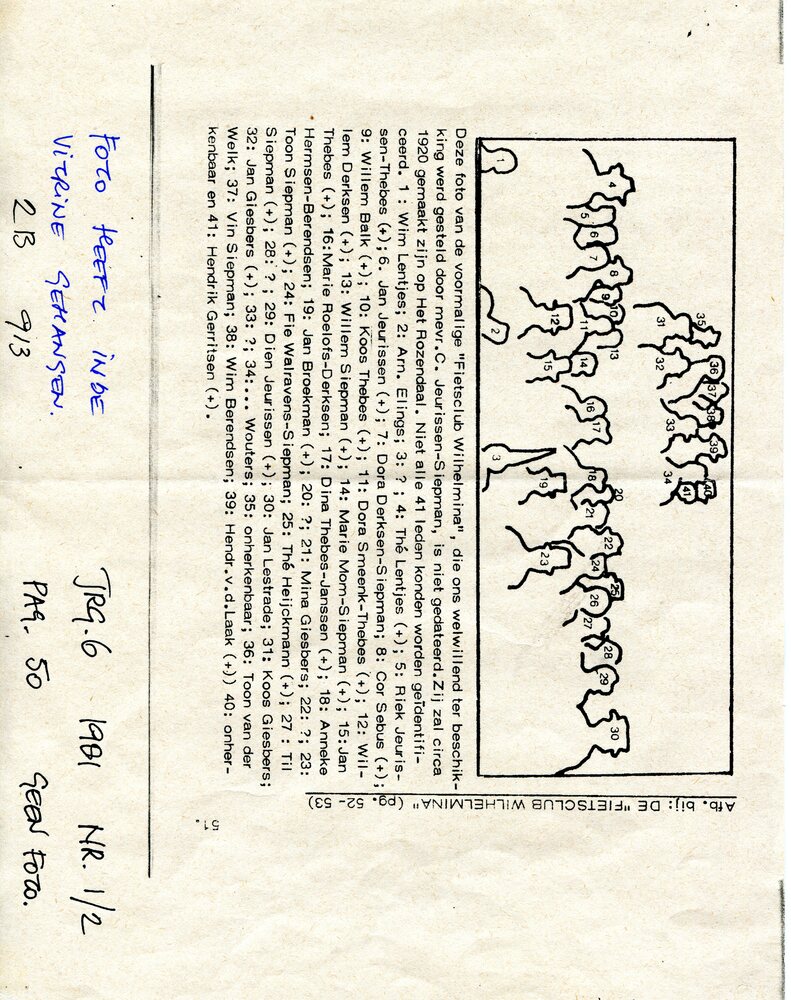 Afb. bij: DE "FIETSCLUB WILHELMINA" (pg. 52-53)
51.
1
2
3
4
5
6
7
8
9
10
11
12
13
14
15
16
17
18
19
20
21
22
23
24
25
26
27
28
29
30
31
32
33
34
35
36
37
38
39
40
41
Deze foto van de voormalige "Fietsclub Wilhelmina", die ons welwillend ter beschik-
king werd gesteld door mevr.C. Jeurissen-Siepman, is niet gedateerd.Zij zal circa
1920 gemaakt zijn op Het Rozendaal. Niet alle 41 leden konden worden geïdentifi-
ceerd. 1 : Wim Lentjes; 2: Arn. Elings; 3: ? ; 4: Thé Lentjes (+); 5: Riek Jeuris-
sen-Thebes (+);6. Jan Jeurissen (+); 7: Dora Derksen-Siepman; 8: Cor Sebus (+);
9: Willem Balk (+); 10: Koos Thebes (+); 11: Dora Smeenk-Thebes (+); 12: Wil-
lem Derksen (+); 13: Willem Siepman (+); 14: Marie Mom-Siepman (+); 15:Jan
Thebes (+); 16:Marie Roelofs-Derksen; 17: Dina Thebes-Janssen (+); 18: Anneke
Hermsen-Berendsen; 19: Jan Broekman (+); 20: ?; 21: Mina Giesbers; 22: ?; 23:
Toon Siepman (+); 24: Fie Walravens-Siepman; 25: Thé Heijckmann (+); 27 : Til
Siepman (+); 28: ? ; 29: Dien Jeurissen (+); 30: Jan Lestrade; 31: Koos Giesbers;
32: Jan Giesbers (+); 33: ?; 34:... Wouters; 35: onherkenbaar; 36: Toon van der
Welk; 37: Vin Siepman; 38: Wim Berendsen; 39: Hendr.v.d.Laak (+)) 40: onher-
kenbaar en 41: Hendrik Gerritsen (+).
FOTO HEEFT IN DE
VITRINE GEHANGEN.
2B 9/3
JRG. 6 1981 NR. 1/2
PAG. 50 GEEN FOTO.